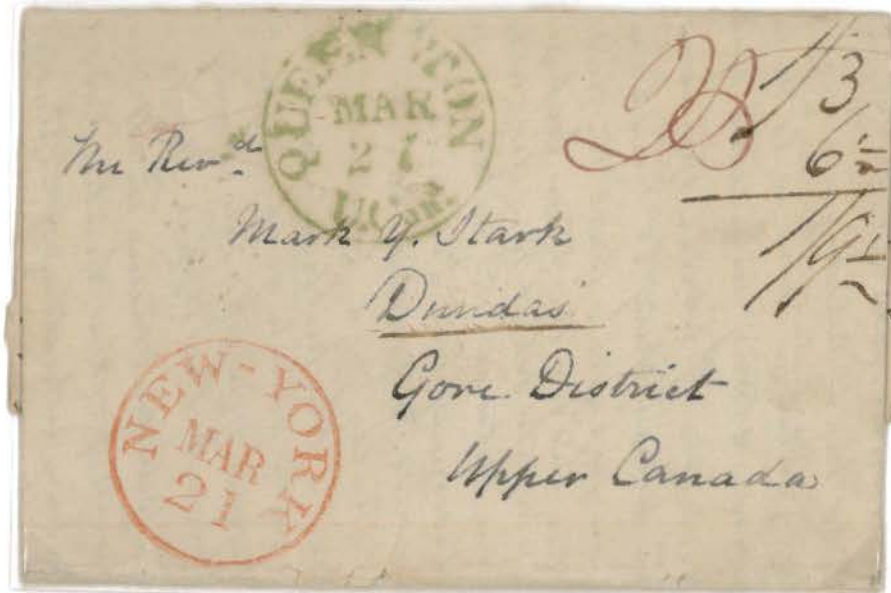 QUEENSTON
MAR
27
U.C.
1/3
6½
1/9½
The Revd.
Mark Y. Stark
Dundas
Gore District
Upper Canada
NEW-YORK
MAR
21